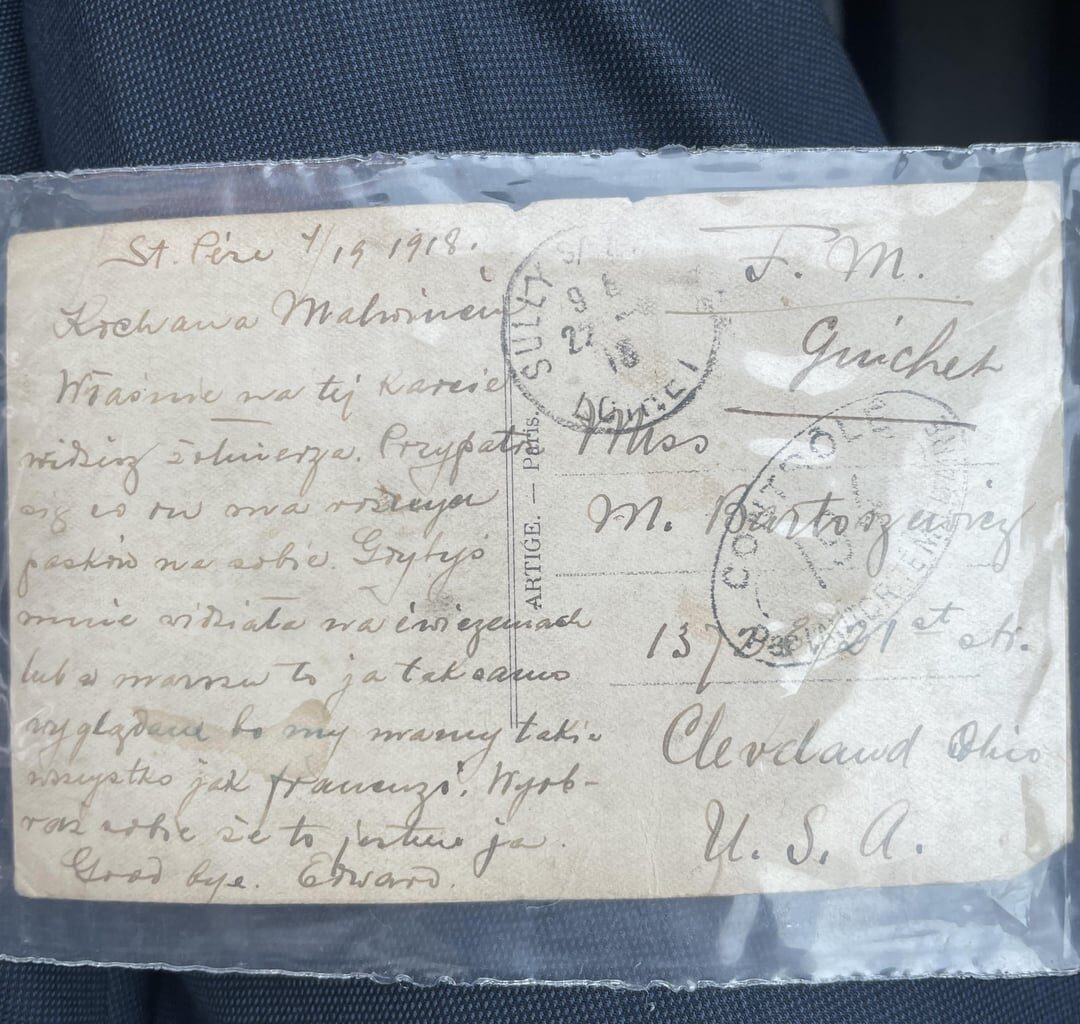 St. Père 4/19 1918.
Kochana Malwineiu
Właśnie na tej karcie
widzisz żołnierza. Przypatrz
się co on ma
pasków na sobie. Gdybyś
mnie widziała na ćwiczeniach
lub w marszu to ja tak samo
wyglądam bo my mamy takie
wszystko jak francuzi. Wyob-
raź sobie że to jestem ja.
Good bye. Edward.
ARTIGE. — Paris.
SULLY
9
22
18
LOIRET
F. M.
Guichet
Miss
M. Bartoszewicz
21 st str.
Cleveland Ohio
U. S. A.
CONTROLE